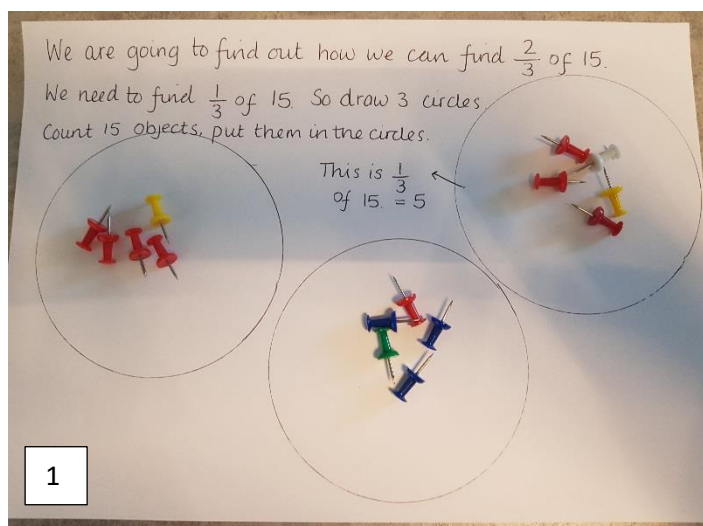 We are going to find out how we can find 2/3 of 15.
We need to find 1/3 of 15. So draw 3 circles
Count 15 objects, put them in the circles.
This is 1/3
of 15. = 5
1